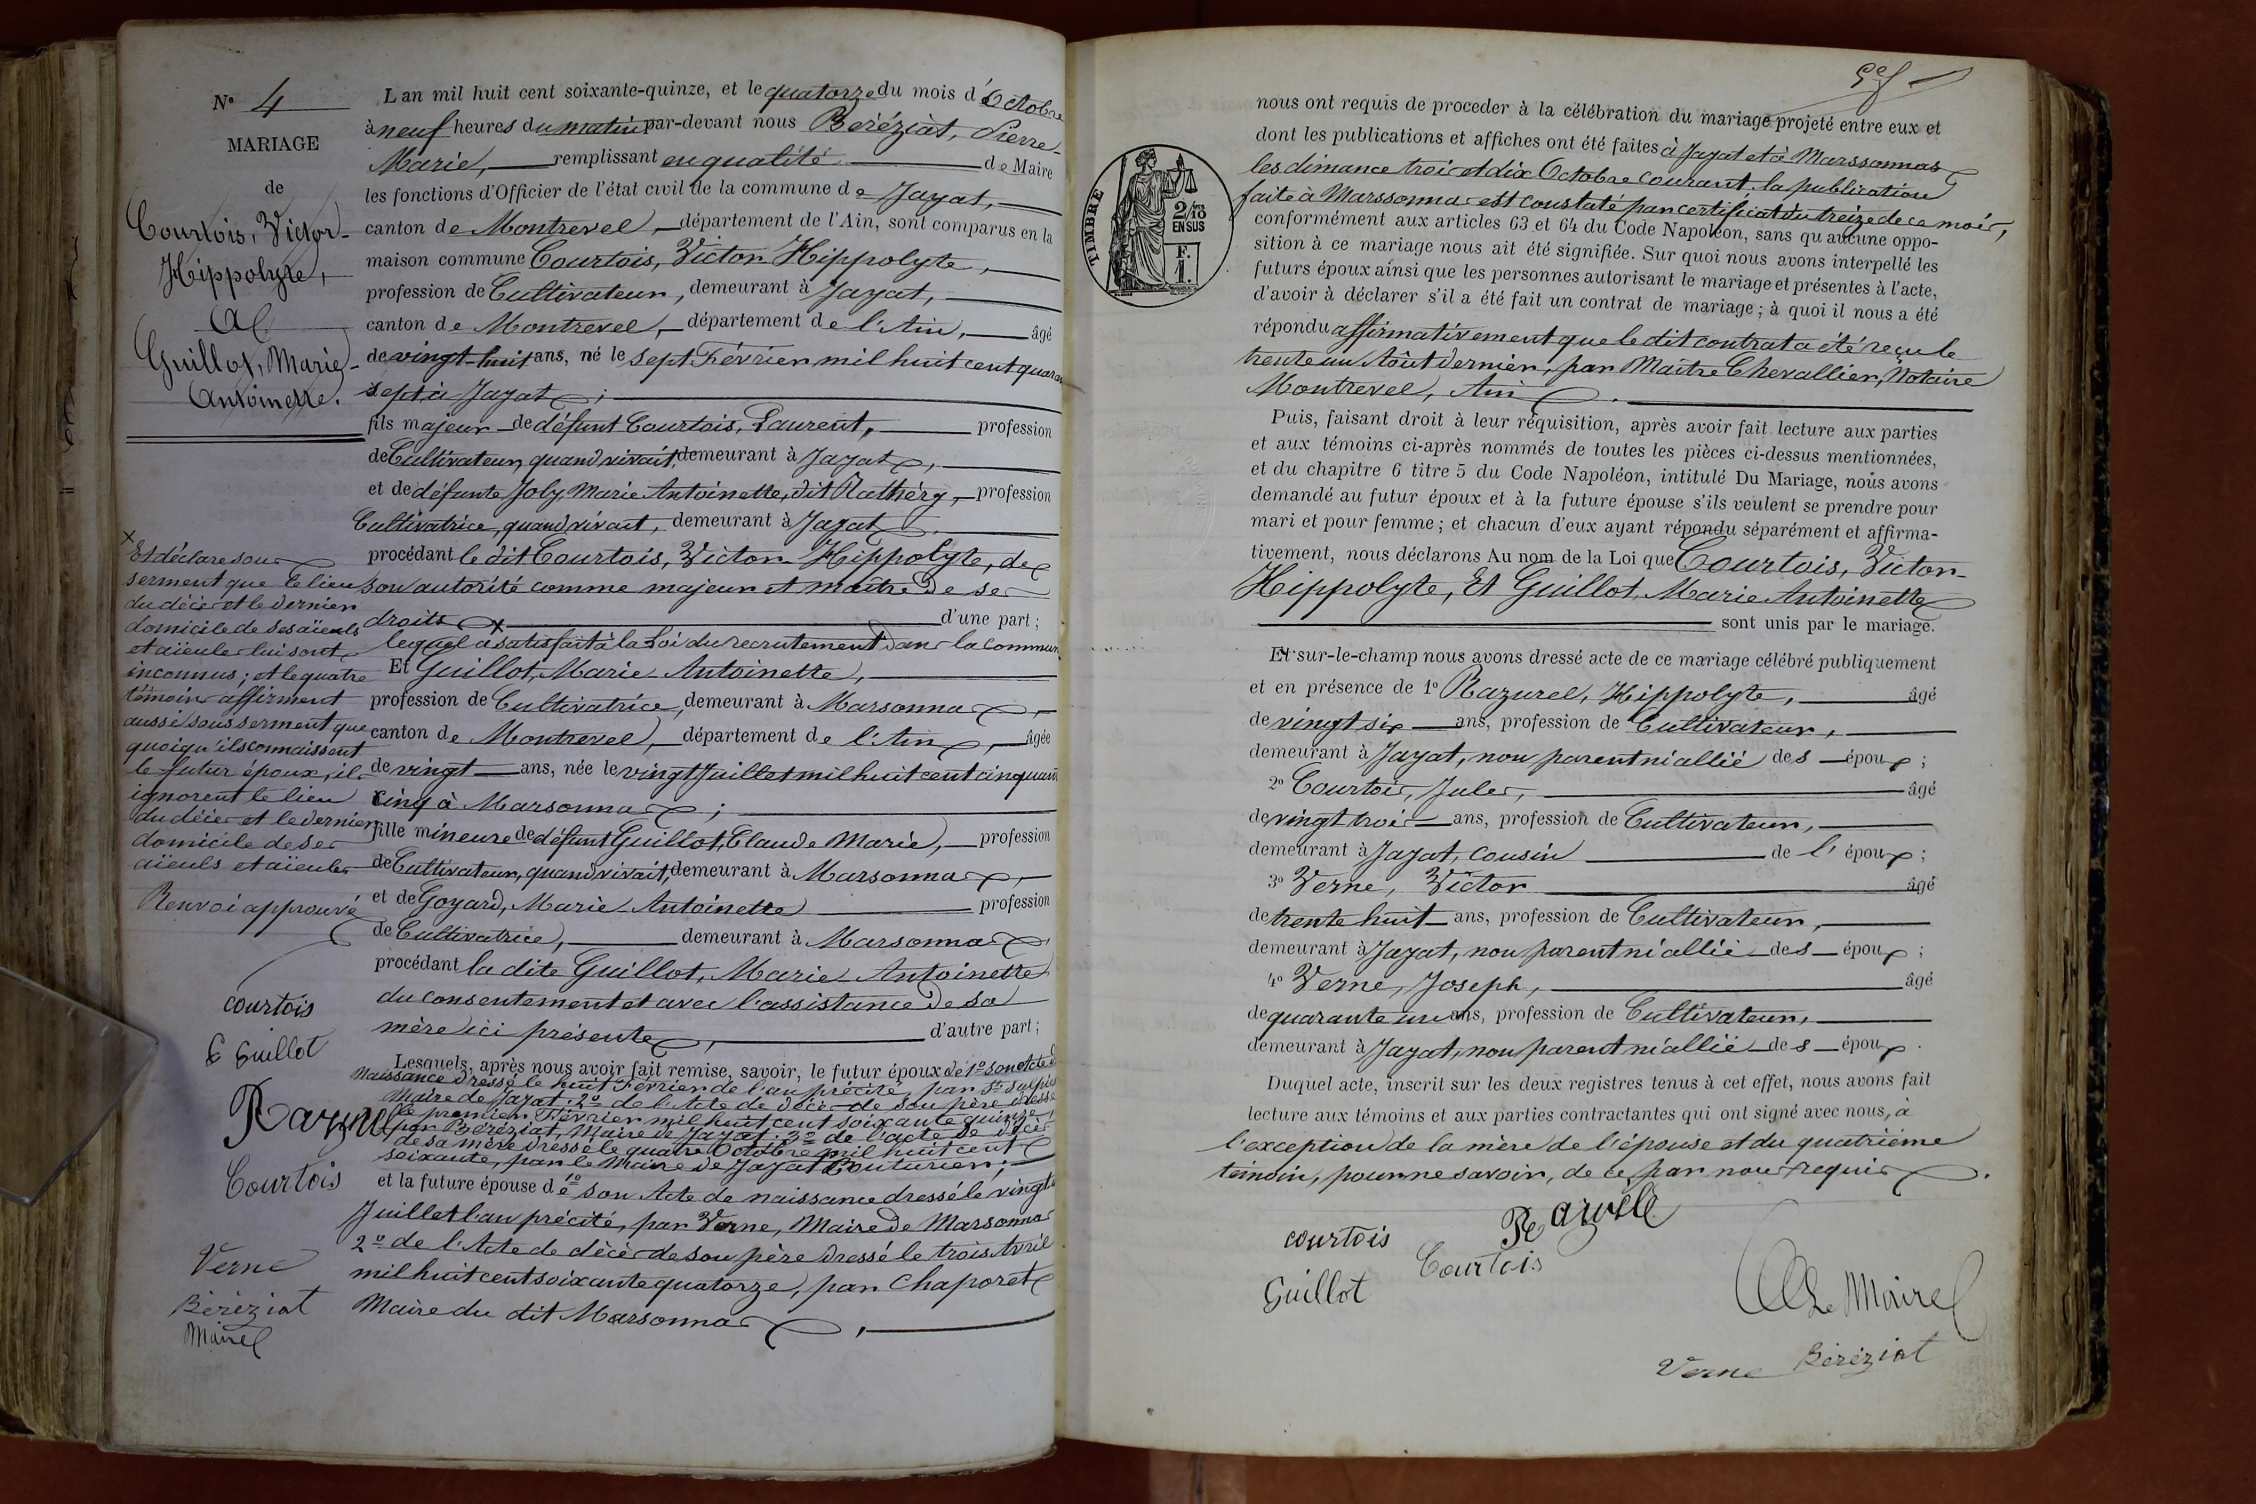 N° 4
MARIAGE
de
Courtois, Victor-
Hippolyte,
Guillot, Marie-
Antoinette.
L an mil huit cent soixante-quinze, et le quatorze du mois d'Octobre
à neuf heures du matin par-devant nous Béréziat, Pierre-
Marie, remplissant en qualité de Maire
les fonctions d'Officier de l'état civil de la commune de Jayat,
canton de Montrevel, département de l'Ain, sont comparus en la
maison commune Courtois, Victor Hippolyte,
profession de Cultivateur, demeurant à Jayat,
canton de Montrevel, département de l'Ain, âgé
de vingt-huit ans, né le sept Février mil huit cent quaran
sept à Jayat;
fils majeur de défunt Courtois, Laurent, profession
de Cultivateur, quand vivait, demeurant à Jayat,
et de défunte Joly Marie Antoinette, dit Rathéry, profession
Cultivatrice, quand vivait, demeurant à Jayat
procédant le dit Courtois, Victor Hippolyte, de
son autorité comme majeur et maître de ses
droits x d'une part;
lequel a satisfait à la Loi du recrutement dans la commune
Et Guillot, Marie Antoinette,
profession de Cultivatrice, demeurant à Marsonnas,
canton de Montrevel, département de l'Ain, âgée
de vingt ans, née le vingt Juillet mil huit cent cinquante
cinq à Marsonnas;
fille mineure de défunt Guillot, Claude Marie, profession
de Cultivateur, quand vivait, demeurant à Marsonnas,
et de Goyard, Marie-Antoinette profession
de Cultivatrice, demeurant à Marsonnas
procédant la dite Guillot, Marie Antoinette
du consentement et avec l'assistance de sa
mère ici présente, d'autre part;
Lesquels, après nous avoir fait remise, savoir, le futur époux de 1° son acte de
naissance dressé le huit Février de l'an précité, par
Maire de Jayat. 2° de l'Acte de décès de son père dressé
le premier Février mil huit cent soixante quinze,
par Béréziat, Maire de Jayat. 3° de l'acte de décès
de sa mère dressé le quatre Octobre mil huit cent
soixante, par le Maire de Jayat Couturier;
et la future épouse de 1° son Acte de naissance dressé le vingt
Juillet l'an précité, par Verne, Maire de Marsonnas
2° de l'Acte de décès de son père dressé le trois Avril
mil huit cent soixante quatorze, par Chaporet
Maire du dit Marsonnas,
x
Et déclare sous
serment que le lieu
du décès et le dernier
domicile de ses aïeuls
et aïeules lui sont
inconnus; et les quatre
témoins affirment
aussi sous serment que
quoiqu'ils connaissent
le futur époux, ils
ignorent le lieu
du décès et le dernier
domicile de ses
aïeuls et aïeules
Renvoi approuvé
courtois
Guillot
Courtois
Verne
Béréziat
Maire
TIMBRE
2/10
EN SUS
F.
1.
nous ont requis de proceder à la célébration du mariage projeté entre eux et
dont les publications et affiches ont été faites à Jayat et à Marssonnas
les dimance trois et dix Octobre courant. la publication
faite à Marssonnas est constaté par certificat du treize de ce mois,
conformément aux articles 63 et 64 du Code Napoléon, sans qu aucune oppo-
sition à ce mariage nous ait été signifiée. Sur quoi nous avons interpellé les
futurs époux ainsi que les personnes autorisant le mariage et présentes à l'acte,
d'avoir à déclarer s'il a été fait un contrat de mariage; à quoi il nous a été
répondu affirmativement que le dit contrat a été reçu le
trente un Août dernier, par Maître Chevallier, Notaire
Montrevel, Ain.
Puis, faisant droit à leur réquisition, après avoir fait lecture aux parties
et aux témoins ci-après nommés de toutes les pièces ci-dessus mentionnées,
et du chapitre 6 titre 5 du Code Napoléon, intitulé Du Mariage, nous avons
demandé au futur époux et à la future épouse s'ils veulent se prendre pour
mari et pour femme; et chacun d'eux ayant répondu séparément et affirma-
tivement, nous déclarons Au nom de la Loi que Courtois, Victor-
Hippolyte, Et Guillot, Marie Antoinette
sont unis par le mariage.
Et sur-le-champ nous avons dressé acte de ce mariage célébré publiquement
et en présence de 1° Razurel, Hippolyte, âgé
de vingt six ans, profession de Cultivateur,
demeurant à Jayat, non parent ni allié des époux;
2° Courtois, Jules, âgé
de vingt trois ans, profession de Cultivateur,
demeurant à Jayat, cousin de l'époux;
3° Verne, Victor âgé
de trente huit ans, profession de Cultivateur,
demeurant à Jayat, non parent ni allié des époux;
4° Verne, Joseph, âgé
de quarante un ans, profession de Cultivateur,
demeurant à Jayat, non parent ni allié des époux.
Duquel acte, inscrit sur les deux registres tenus à cet effet, nous avons fait
lecture aux témoins et aux parties contractantes qui ont signé avec nous, à
l'exception de la mère de l'épouse et du quatrième
témoin, pour ne savoir, de ce par nous requis.
courtois
Courtois
Guillot
Le Maire
Verne Béréziat